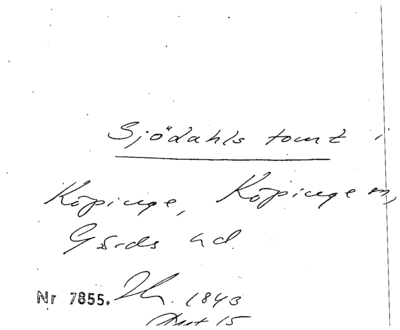 Sjödahls tomt i
Köpinge, Köpinge sn,
Gärds hd.
Nr 7855. 1843